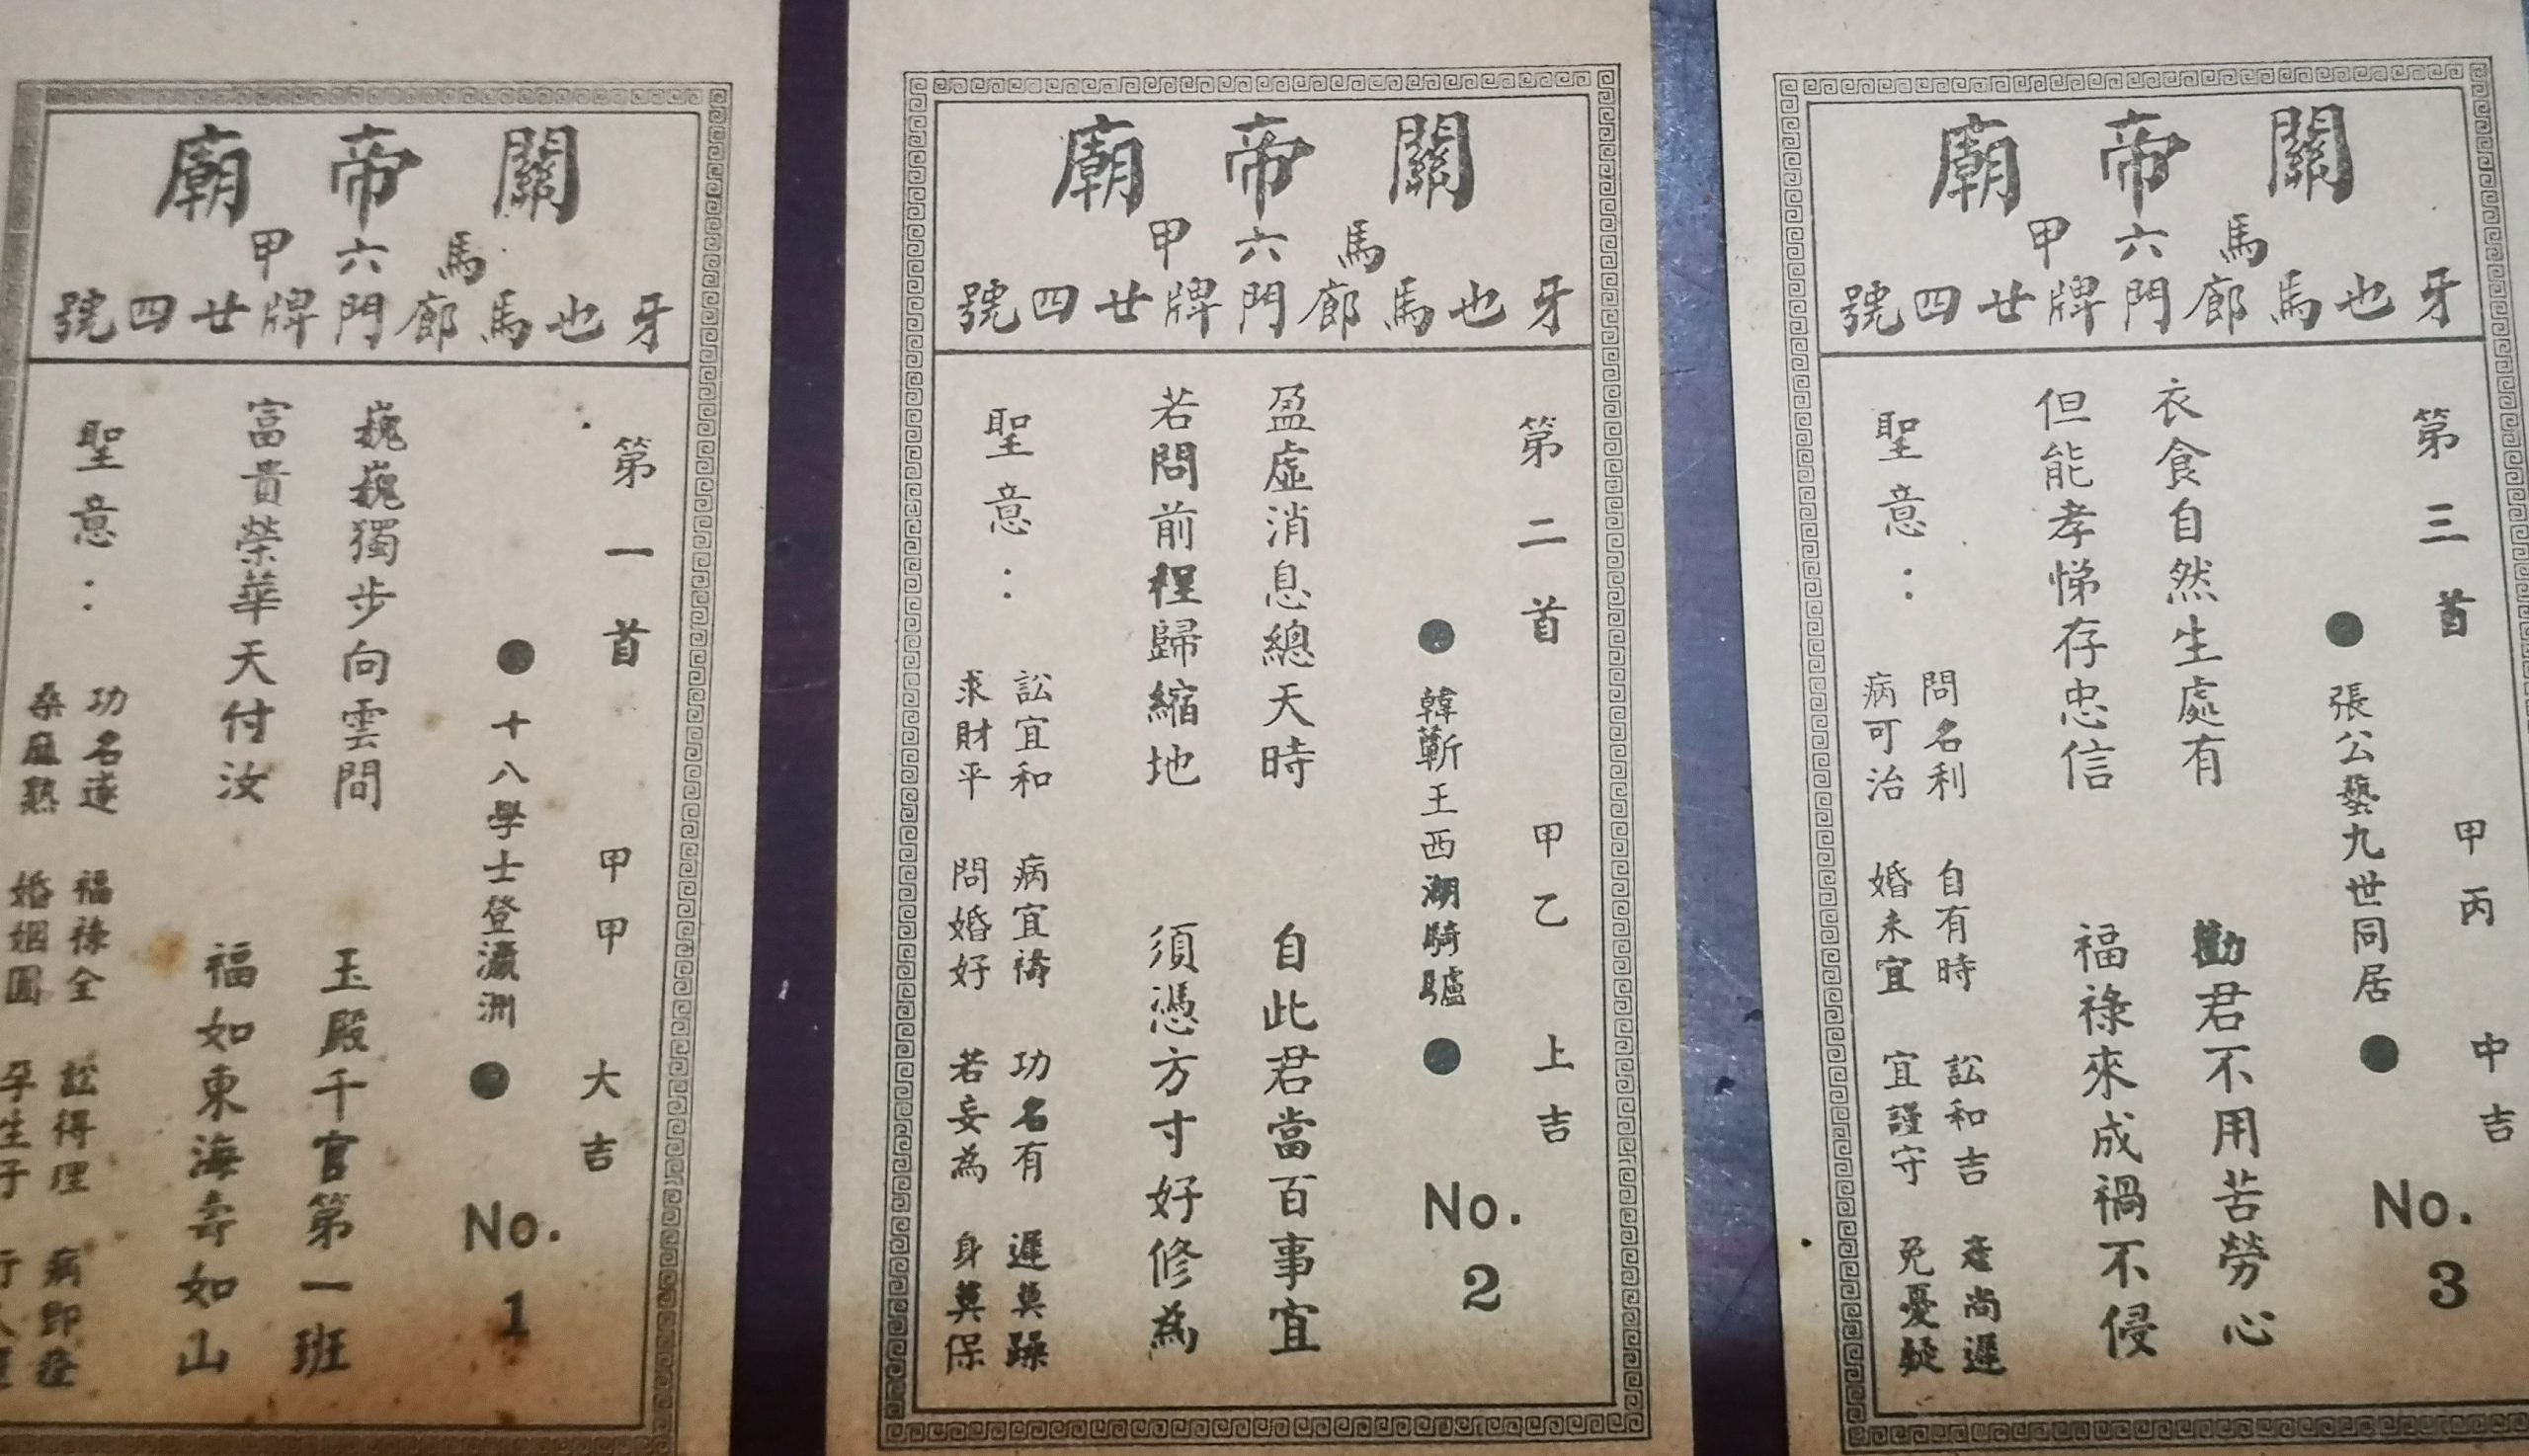 關帝廟
馬六甲
牙也馬廊門牌廿四號
第一首 甲甲 大吉
●十八學士登瀛洲●
No. 1
巍巍獨步向雲間 玉殿千官第一班
富貴榮華天付汝 福如東海壽如山
聖意：
功名遂 福祿全 訟得理 病即痊
桑麻熟 婚姻圓 孕生子 行人還
關帝廟
馬六甲
牙也馬廊門牌廿四號
第二首 甲乙 上吉
●韓蘄王西湖騎驢●
No. 2
盈虛消息總天時 自此君當百事宜
若問前程歸縮地 須憑方寸好修為
聖意：
訟宜和 病宜禱 功名有 遲莫躁
求財平 問婚好 若妄為 身莫保
關帝廟
馬六甲
牙也馬廊門牌廿四號
第三首 甲丙 中吉
●張公藝九世同居●
No. 3
衣食自然生處有 勸君不用苦勞心
但能孝悌存忠信 福祿來成禍不侵
聖意：
問名利 自有時 訟和吉 產尚遲
病可治 婚未宜 宜謹守 免憂疑